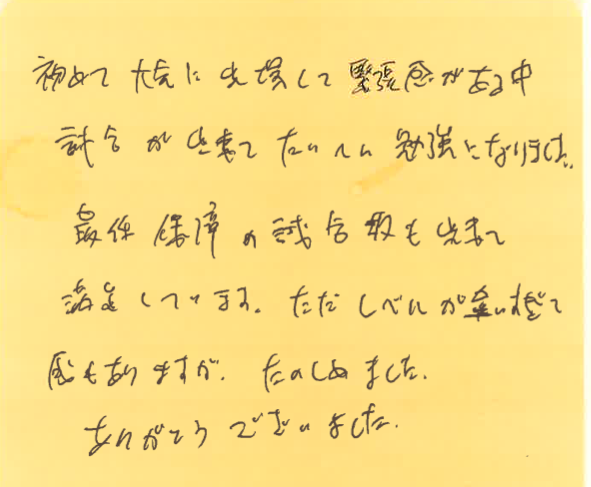 初めて大会に出場して緊張感がある中
試合が出来てたいへん勉強になりました。
最低保障の試合数も出来て
満足しています。ただレベルが違いすぎて
感もありますが、たのしめました。
ありがとうございました。